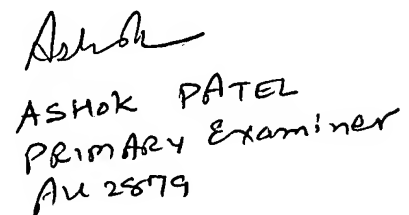 Ashok
ASHOK PATEL
PRIMARY Examiner
AU 2879